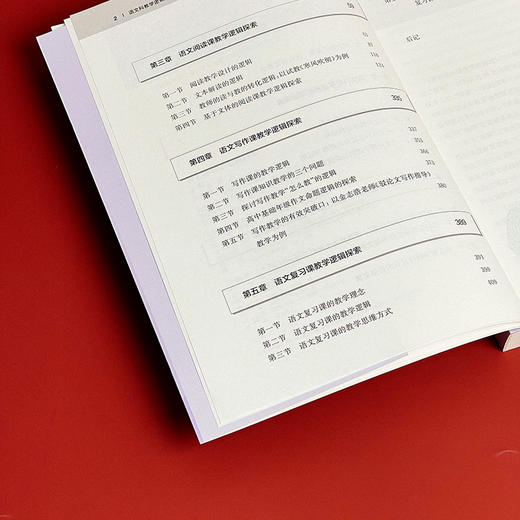 2 | 语文科教学逻辑
第三章 语文阅读课教学逻辑探索
第一节 阅读教学设计的逻辑
第二节 文本解读的逻辑
第三节 教师的读与教的转化逻辑:以试教《寒风吹彻》为例
第四节 基于文体的阅读课教学逻辑探索
第四章 语文写作课教学逻辑探索 335
第一节 写作课的教学逻辑 337
第二节 写作课知识教学的三个问题
第三节 探讨写作教学“怎么教”的逻辑
第四节 高中基础年级作文命题逻辑的探索 364
第五节 写作教学的有效突破口:以金志浩老师《驳论文写作指导》 380
教学为例
第五章 语文复习课教学逻辑探索 389
第一节 语文复习课的教学理念 391
第二节 语文复习课的教学逻辑 399
第三节 语文复习课的教学思维方式 409
后记